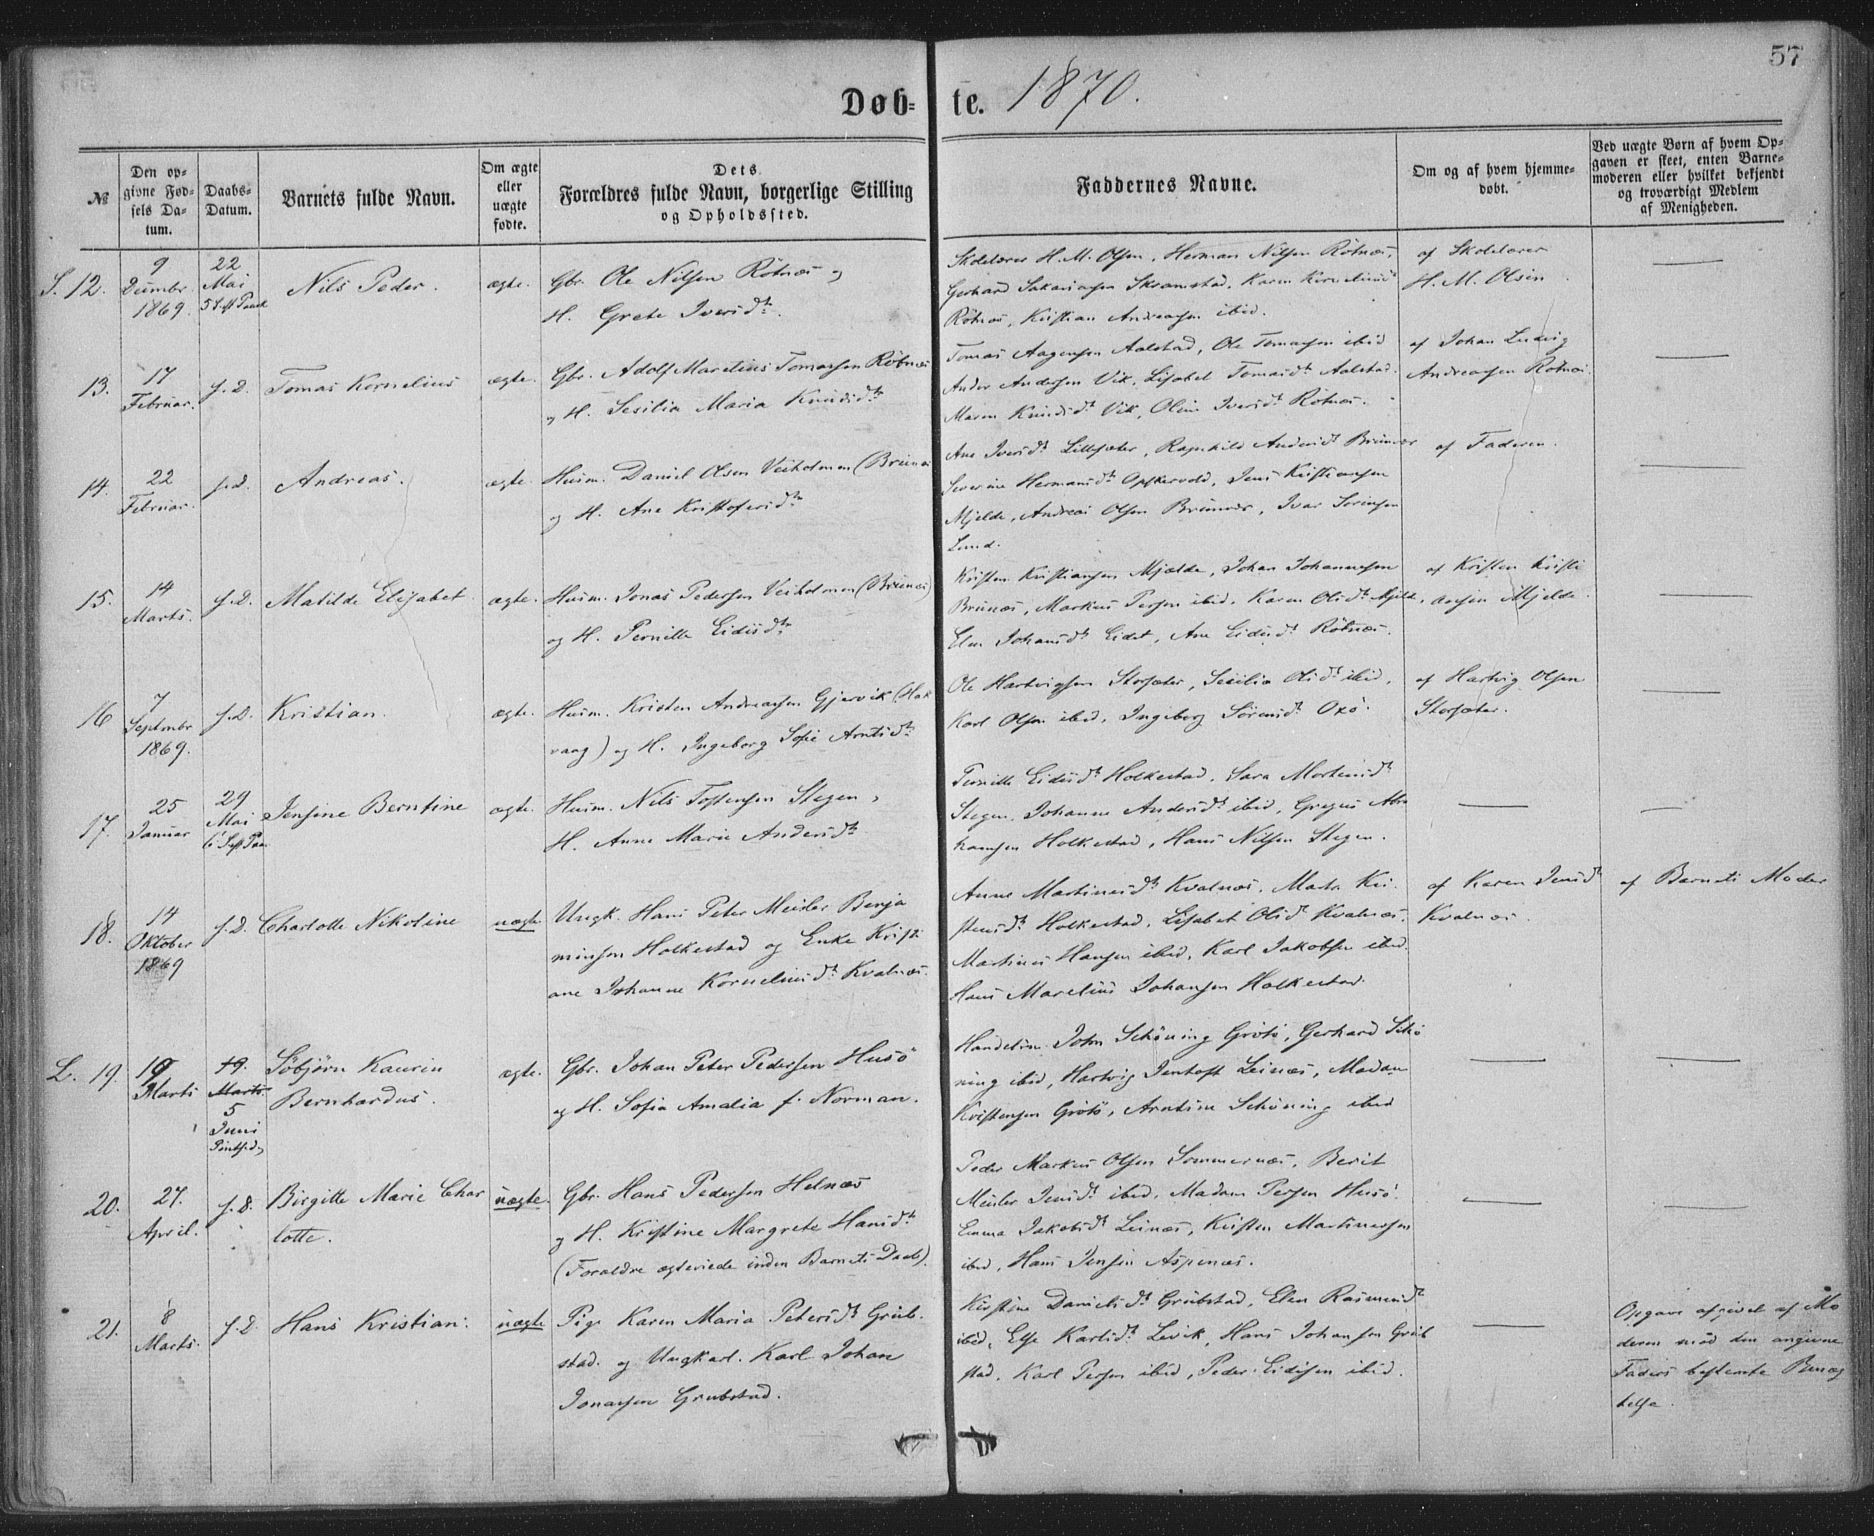 57
Døb-te. 1870.
№
Den op-
givne Fød-
sels Da-
tum.
Daabs-
Datum.
Barnets fulde Navn.
Om ægte
eller
uægte
fødte.
Dets
Forældres fulde Navn, borgerlige Stilling
og Opholdssted.
Faddernes Navne.
Om og af hvem hjemme-
døbt.
Ved uægte Børn af hvem Op-
gaven er skeet, enten Barne-
moderen eller hvilket bekjendt
og troværdigt Medlem
af Menigheden.
S. 12.
9
Decembr
1869.
22
Mai
Nils Peder.
ægte.
Gbr. Ole Nilsen Rötnæs og
H. Grete Iversdtr.
Skolelærer H. M. Olsen, Herman Nilsen Rötnæs,
Gerhard Sakariasen Skramstad, Karen Korneliusdtr
Rötnæs, Kristian Andreasen ibid.
af Skolelærer
H. M. Olsen
13.
17
Februar.
s. D.
Tomas Kornelius
ægte.
Gbr. Adolf Marelius Tomassen Rötnæs
og H. Sesilia Maria Knudsdtr
Tomas Aagensen Aalstad, Ole Tomassen ibid
Anders Andersen Vik, Lisabet Tomasdtr Aalstad.
Maren Knudsdtr Vik, Oline Iversdtr Rötnæs.
af Johan Ludvig
Andreassen Rötnæs.
14.
22
Februar.
s. d.
Andreas.
ægte.
Husm. Daniel Olsen Veiholmen (Brunæs
og H. Ane Kristofersdtr
Ane Iversdtr Lillesæter, Ragnhild Andersdtr Brunæs
Severine Hermansdtr Oppkervold, Jens Kristiansen
Mjelde, Andreas Olsen Brunæs, Ivar Sörensen
Lund.
af Faderen.
15.
14
Marts.
s. D.
Matilde Elisabet
ægte.
Husm. Jonas Pedersen Veiholmen (Brunæs)
og H. Pernille Eidisdtr
Kristen Kristiansen Mjelde, Johan Johannesen
Brunæs, Markus Persen ibid, Karen Olsdtr Mjelde,
Elen Johansdtr Eidet, Ane Eidisdtr Rötnæs.
af Kristen Kristi
ansen Mjelde.
16
7
Septembr
1869.
s. D.
Kristian.
ægte.
Husm. Kristen Andreassen Gjervik (Hak
vaag) og H. Ingeborg Sofie Arntsdtr
Ole Hartvigsen Storsæter, Sesilia Olsdtr ibid,
Karl Olsen ibid, Ingeborg Sörensdtr Oxö.
af Hartvig Olsen
Storsæter.
17.
25
Januar
29
Mai
Jensine Berntine
ægte.
Husm. Nils Tostensen Stegen,
H. Anne Marie Andersdtr
Pernille Eidisdtr Holkestad, Sara Mortensdtr
Stegen, Johanne Andersdtr ibid, Gregus Abra
hamsen Holkestad, Hans Nilsen Stegen.
18.
14
Oktober
1869
s. D.
Charlotte Nikoline
uægte
Ungk. Hans Peter Meisler Benja
minsen Holkestad og Enke Kristi
ane Johanne Korneliusdtr Kvalnæs.
Anne Martinusdtr Kvalnæs, Mata Kri
stensdtr Holkestad, Lisabet Olsdtr Kvalnæs,
Martinus Hansen ibid, Karl Jakobsen ibid.
Hans Marelius Johansen Holkestad.
af Karen Jensdtr
Kvalnæs.
af Barnets Moder
L. 19.
19
Marts
19.
Marts
5
Juni
Söbjörn Kaurin
Bernhardus.
ægte.
Gbr. Johan Peter Pedersen Husö
og H. Sofia Amalia f. Norman.
Handelsm. John Schöning Grötö, Gerhard Schö
ning ibid, Hartvig Jentoft Leinæs, Madam
Kristensen Grötö, Arntine Schöning ibid
20.
27.
April.
s. D.
Birgitte Marie Char
lotte.
uægte.
Gbr. Hans Pedersen Helnæs
og H. Kristine Margrete Hansdtr
(Forældre ægteviede inden Barnets Daab).
Peder Markus Olsen Sommernæs, Berit
Meisler Jensdtr ibid, Madam Persen Husö.
Emma Jakobsdtr Leinæs, Kristen Martinussen
ibid, Hans Jensen Aspenæs.
21.
8
Marts.
s. D.
Hans Kristian.
uægte
Pige Karen Maria Petersdtr Grub-
stad og Ungkarl. Karl Johan
Jonassen Grubstad.
Kirstine Danielsdtr Grubstad, Elen Rasmusdtr
ibid, Else Karlsdtr Levik, Hans Johansen Grub
stad, Karl Persen ibid, Peder Eidissen ibid.
Opgave afgivet af Mo
deren mod den angivne
Faders bestemte Benæg
telse.